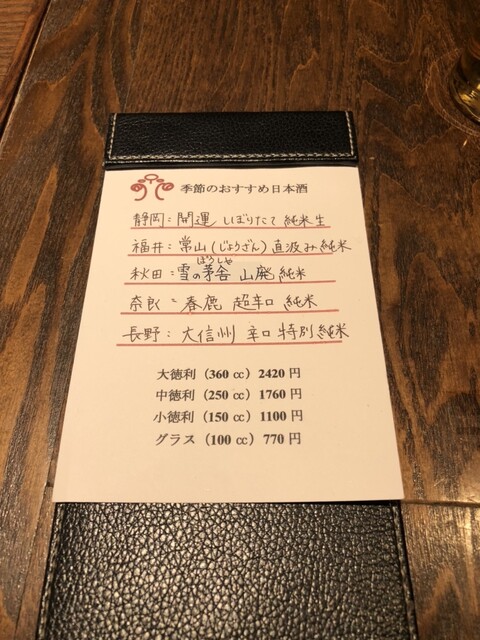 季節のおすすめ日本酒
静岡：開運 しぼりたて 純米生
福井：常山(じょうざん)直汲み純米
ぼうしゃ
秋田：雪の茅舎 山廃 純米
奈良：春鹿 超辛口 純米
長野：大信州 辛口 特別純米
大徳利（360 cc）2420 円
中徳利（250 cc）1760 円
小徳利（150 cc）1100 円
グラス（100 cc）770 円